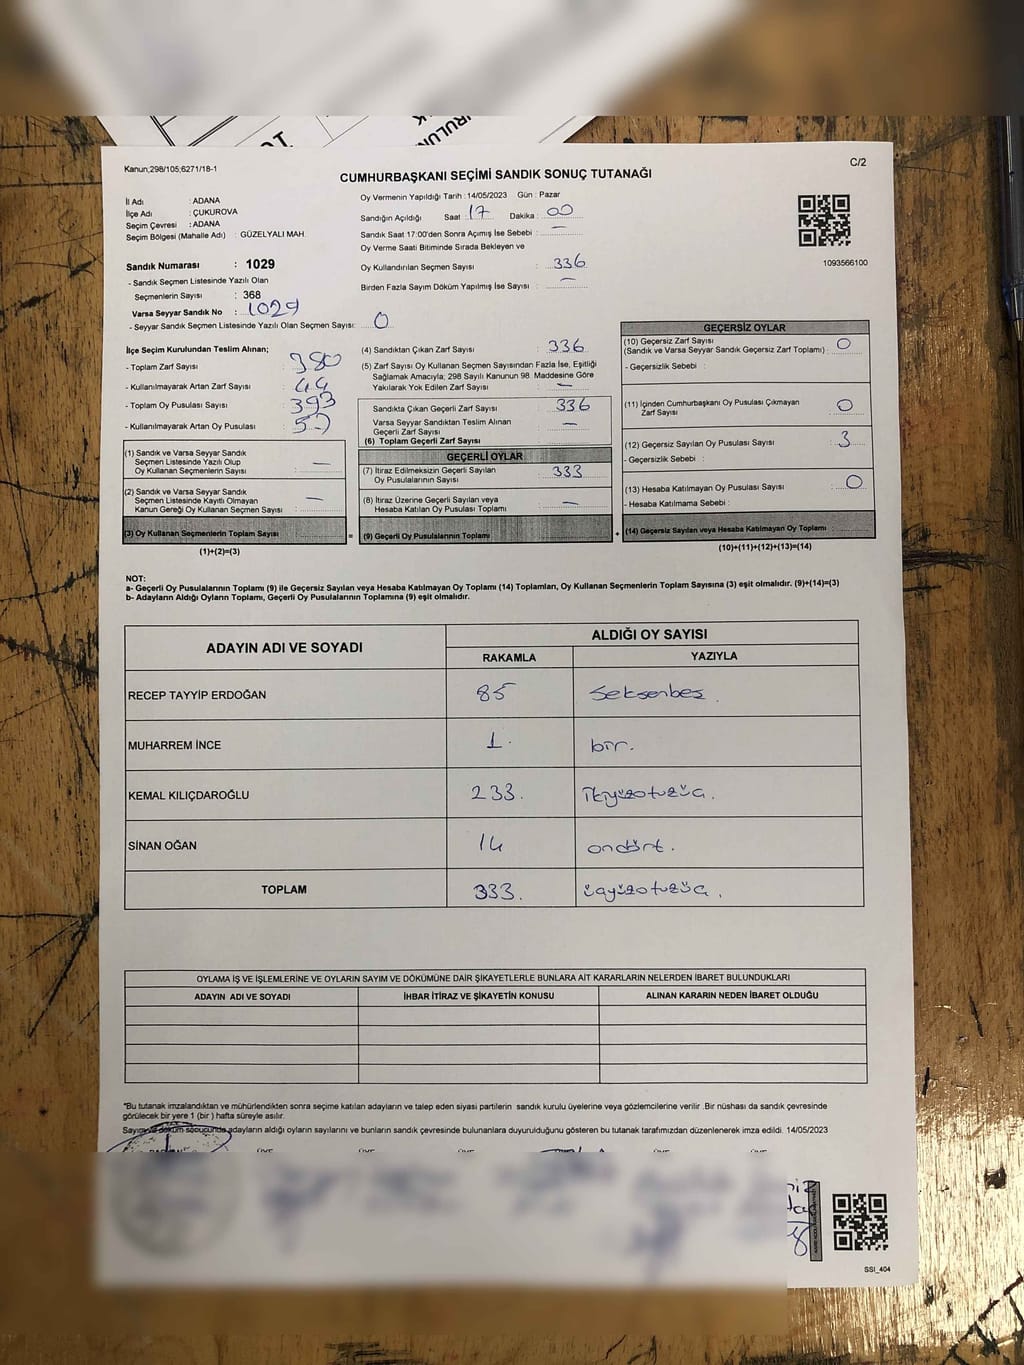 URULUN
K
Kanun;298/105;6271/18-1
C/2
CUMHURBAŞKANI SEÇİMİ SANDIK SONUÇ TUTANAĞI
İl Adı : ADANA
İlçe Adı : ÇUKUROVA
Seçim Çevresi : ADANA
Seçim Bölgesi (Mahalle Adı) : GÜZELYALI MAH.
Oy Vermenin Yapıldığı Tarih : 14/05/2023 Gün : Pazar
Sandığın Açıldığı Saat : 17 Dakika : 00
Sandık Saat 17:00'den Sonra Açımış İse Sebebi : —
Oy Verme Saati Bitiminde Sırada Bekleyen ve
Oy Kullandırılan Seçmen Sayısı : 336
Birden Fazla Sayım Döküm Yapılmış İse Sayısı : —
1093566100
Sandık Numarası : 1029
- Sandık Seçmen Listesinde Yazılı Olan
Seçmenlerin Sayısı : 368
Varsa Seyyar Sandık No : 1029
- Seyyar Sandık Seçmen Listesinde Yazılı Olan Seçmen Sayısı: 0
İlçe Seçim Kurulundan Teslim Alınan;
- Toplam Zarf Sayısı : 380
- Kullanılmayarak Artan Zarf Sayısı : 44
- Toplam Oy Pusulası Sayısı : 393
- Kullanılmayarak Artan Oy Pusulası :
(1) Sandık ve Varsa Seyyar Sandık
Seçmen Listesinde Yazılı Olup
Oy Kullanan Seçmenlerin Sayısı : —
(2) Sandık ve Varsa Seyyar Sandık
Seçmen Listesinde Kayıtlı Olmayan
Kanun Gereği Oy Kullanan Seçmen Sayısı : —
(3) Oy Kullanan Seçmenlerin Toplam Sayısı :
(1)+(2)=(3)
(4) Sandıktan Çıkan Zarf Sayısı : 336
(5) Zarf Sayısı Oy Kullanan Seçmen Sayısından Fazla İse, Eşitliği
Sağlamak Amacıyla; 298 Sayılı Kanunun 98. Maddesine Göre
Yakılarak Yok Edilen Zarf Sayısı : —
Sandıkta Çıkan Geçerli Zarf Sayısı : 336
Varsa Seyyar Sandıktan Teslim Alınan
Geçerli Zarf Sayısı : —
(6) Toplam Geçerli Zarf Sayısı :
GEÇERLİ OYLAR
(7) İtiraz Edilmeksizin Geçerli Sayılan
Oy Pusulalarının Sayısı : 333
(8) İtiraz Üzerine Geçerli Sayılan veya
Hesaba Katılan Oy Pusulası Toplamı : —
= (9) Geçerli Oy Pusulalarının Toplamı :
GEÇERSİZ OYLAR
(10) Geçersiz Zarf Sayısı
(Sandık ve Varsa Seyyar Sandık Geçersiz Zarf Toplamı) : 0
- Geçersizlik Sebebi :
(11) İçinden Cumhurbaşkanı Oy Pusulası Çıkmayan
Zarf Sayısı : 0
(12) Geçersiz Sayılan Oy Pusulası Sayısı : 3
- Geçersizlik Sebebi :
(13) Hesaba Katılmayan Oy Pusulası Sayısı : 0
- Hesaba Katılmama Sebebi :
+ (14) Geçersiz Sayılan veya Hesaba Katılmayan Oy Toplamı :
(10)+(11)+(12)+(13)=(14)
NOT:
a- Geçerli Oy Pusulalarının Toplamı (9) ile Geçersiz Sayılan veya Hesaba Katılmayan Oy Toplamı (14) Toplamları, Oy Kullanan Seçmenlerin Toplam Sayısına (3) eşit olmalıdır. (9)+(14)=(3)
b- Adayların Aldığı Oyların Toplamı, Geçerli Oy Pusulalarının Toplamına (9) eşit olmalıdır.
ADAYIN ADI VE SOYADI ALDIĞI OY SAYISI
RAKAMLA YAZIYLA
RECEP TAYYİP ERDOĞAN 85 Seksenbeş.
MUHARREM İNCE 1. bir.
KEMAL KILIÇDAROĞLU 233. ikiyüzotuzüç.
SİNAN OĞAN 14 ondört.
TOPLAM 333. üçyüzotuzüç.
OYLAMA İŞ VE İŞLEMLERİNE VE OYLARIN SAYIM VE DÖKÜMÜNE DAİR ŞİKAYETLERLE BUNLARA AİT KARARLARIN NELERDEN İBARET BULUNDUKLARI
ADAYIN ADI VE SOYADI İHBAR İTİRAZ VE ŞİKAYETİN KONUSU ALINAN KARARIN NEDEN İBARET OLDUĞU
"Bu tutanak imzalandıktan ve mühürlendikten sonra seçime katılan adayların ve talep eden siyasi partilerin sandık kurulu üyelerine veya gözlemcilerine verilir .Bir nüshası da sandık çevresinde
görülecek bir yere 1 (bir ) hafta süreyle asılır.
Sayım ve döküm sonucunda adayların aldığı oyların sayılarını ve bunların sandık çevresinde bulunanlara duyurulduğunu gösteren bu tutanak tarafımızdan düzenlenerek imza edildi. 14/05/2023
SSI_404